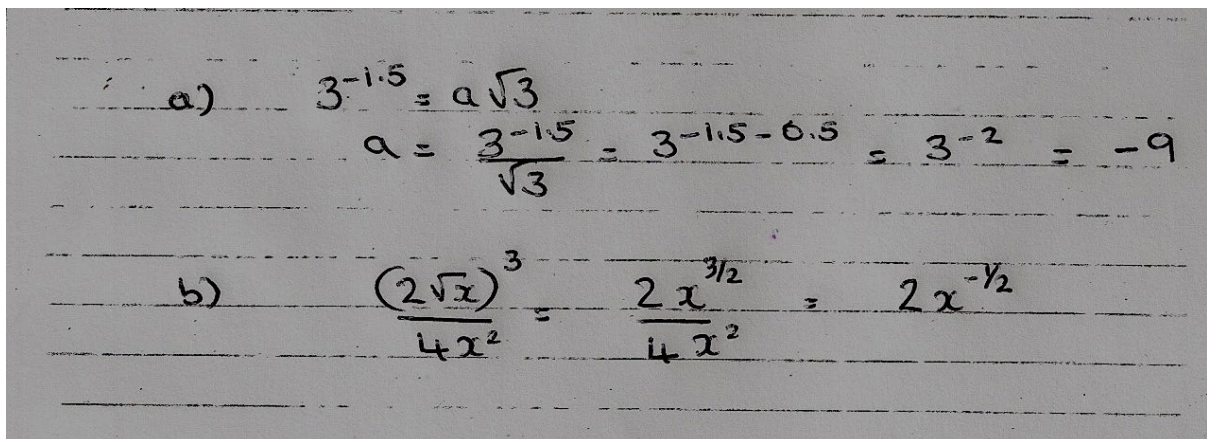 a) 3^-1.5 = a√3
a = 3^-1.5/√3 = 3^-1.5-0.5 = 3^-2 = -9
b) (2√x)^3/4x^2 = 2x^3/2/4x^2 = 2x^-1/2